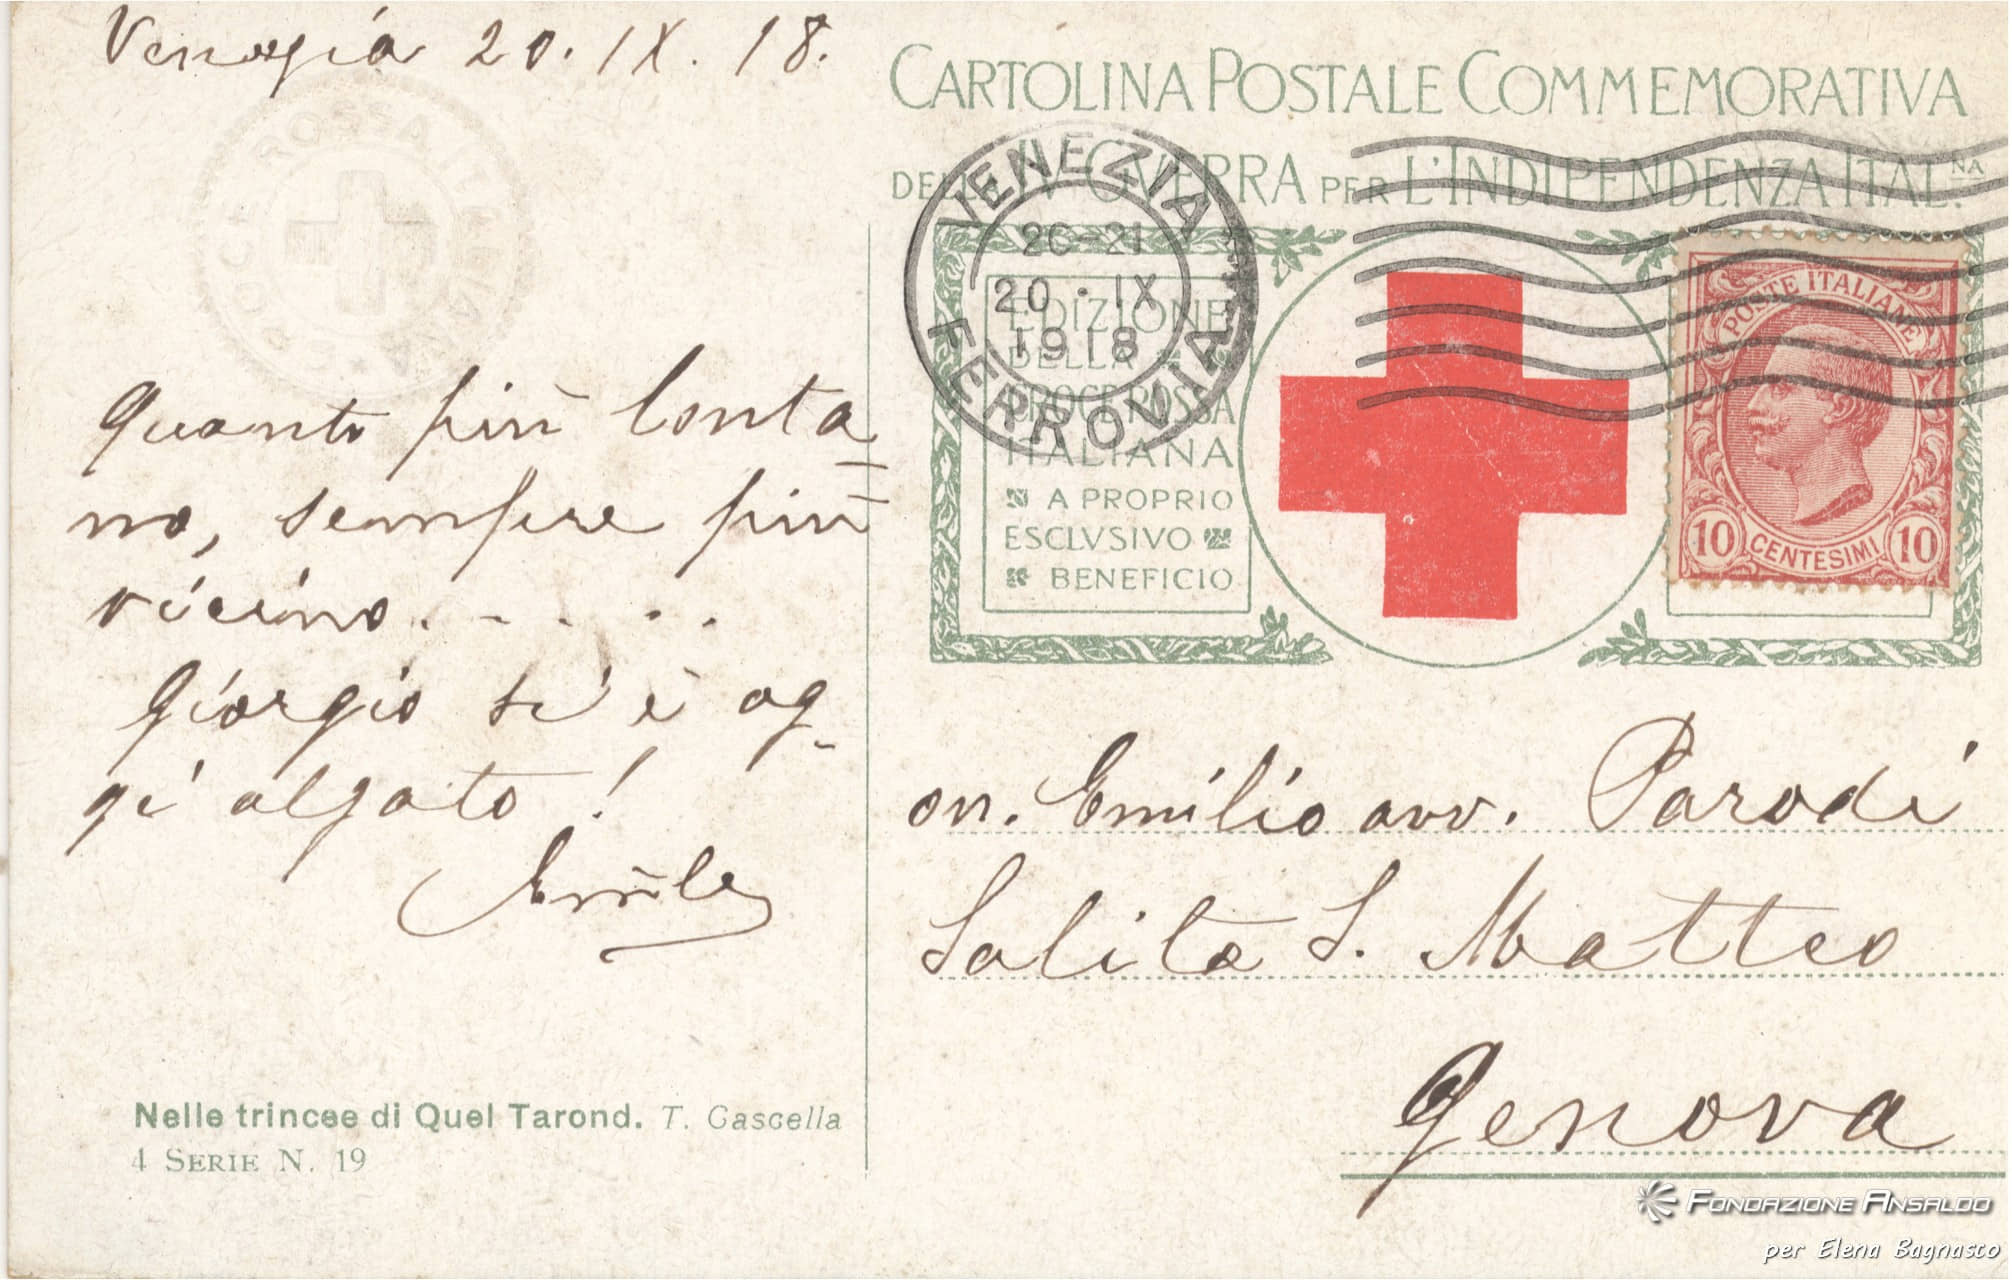 Venezia 20. IX. 18.
CROCE ROSSA ITALIANA
Quanto più lonta
no, sempre più
vicino. . . . . .
Giorgio si è og-
gi alzato !
Emile
Nelle trincee di Quel Tarond. T. Cascella
4 SERIE N. 19
CARTOLINA POSTALE COMMEMORATIVA
DELLA IV GVERRA PER L'INDIPENDENZA ITAL.NA
VENEZIA
20-21
20 · IX
1918
FERROVIA
EDIZIONE
DELLA
CROCE ROSSA
ITALIANA
A PROPRIO
ESCLVSIVO
BENEFICIO
POSTE ITALIANE
10 CENTESIMI 10
on. Emilio avv. Parodi
Salita S. Matteo
Genova
FONDAZIONE ANSALDO
per Elena Bagnasco